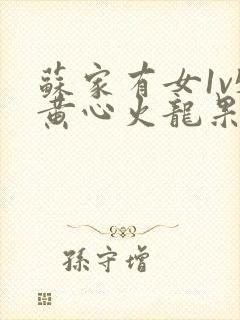 蘇家有女1v
黄心火龍果
孫守增